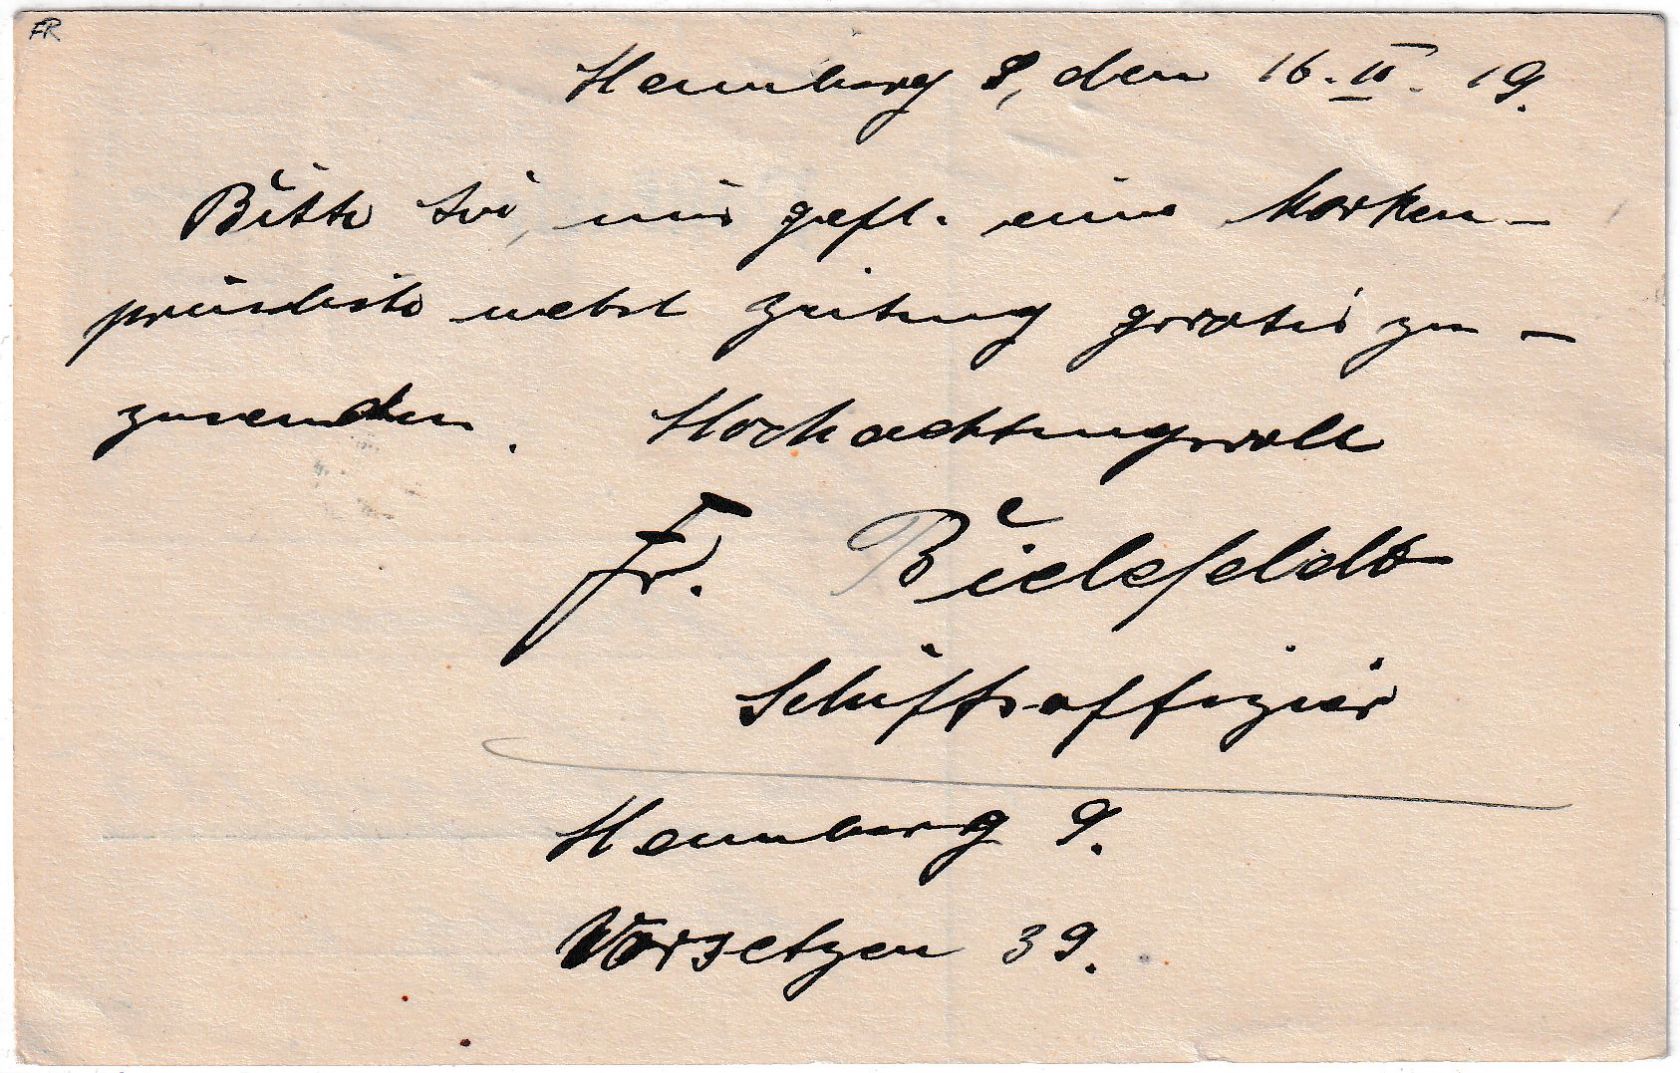 FR
Hamburg 9, den 16. II. 19.
Bitte Sie, mir gefl. eine Marken-
preisliste nebst Zeitung gratis zu-
zusenden. Hochachtungsvoll
Fr. Bielefeldt
Schiffsoffizier
Hamburg 9.
Vorsetzen 39.